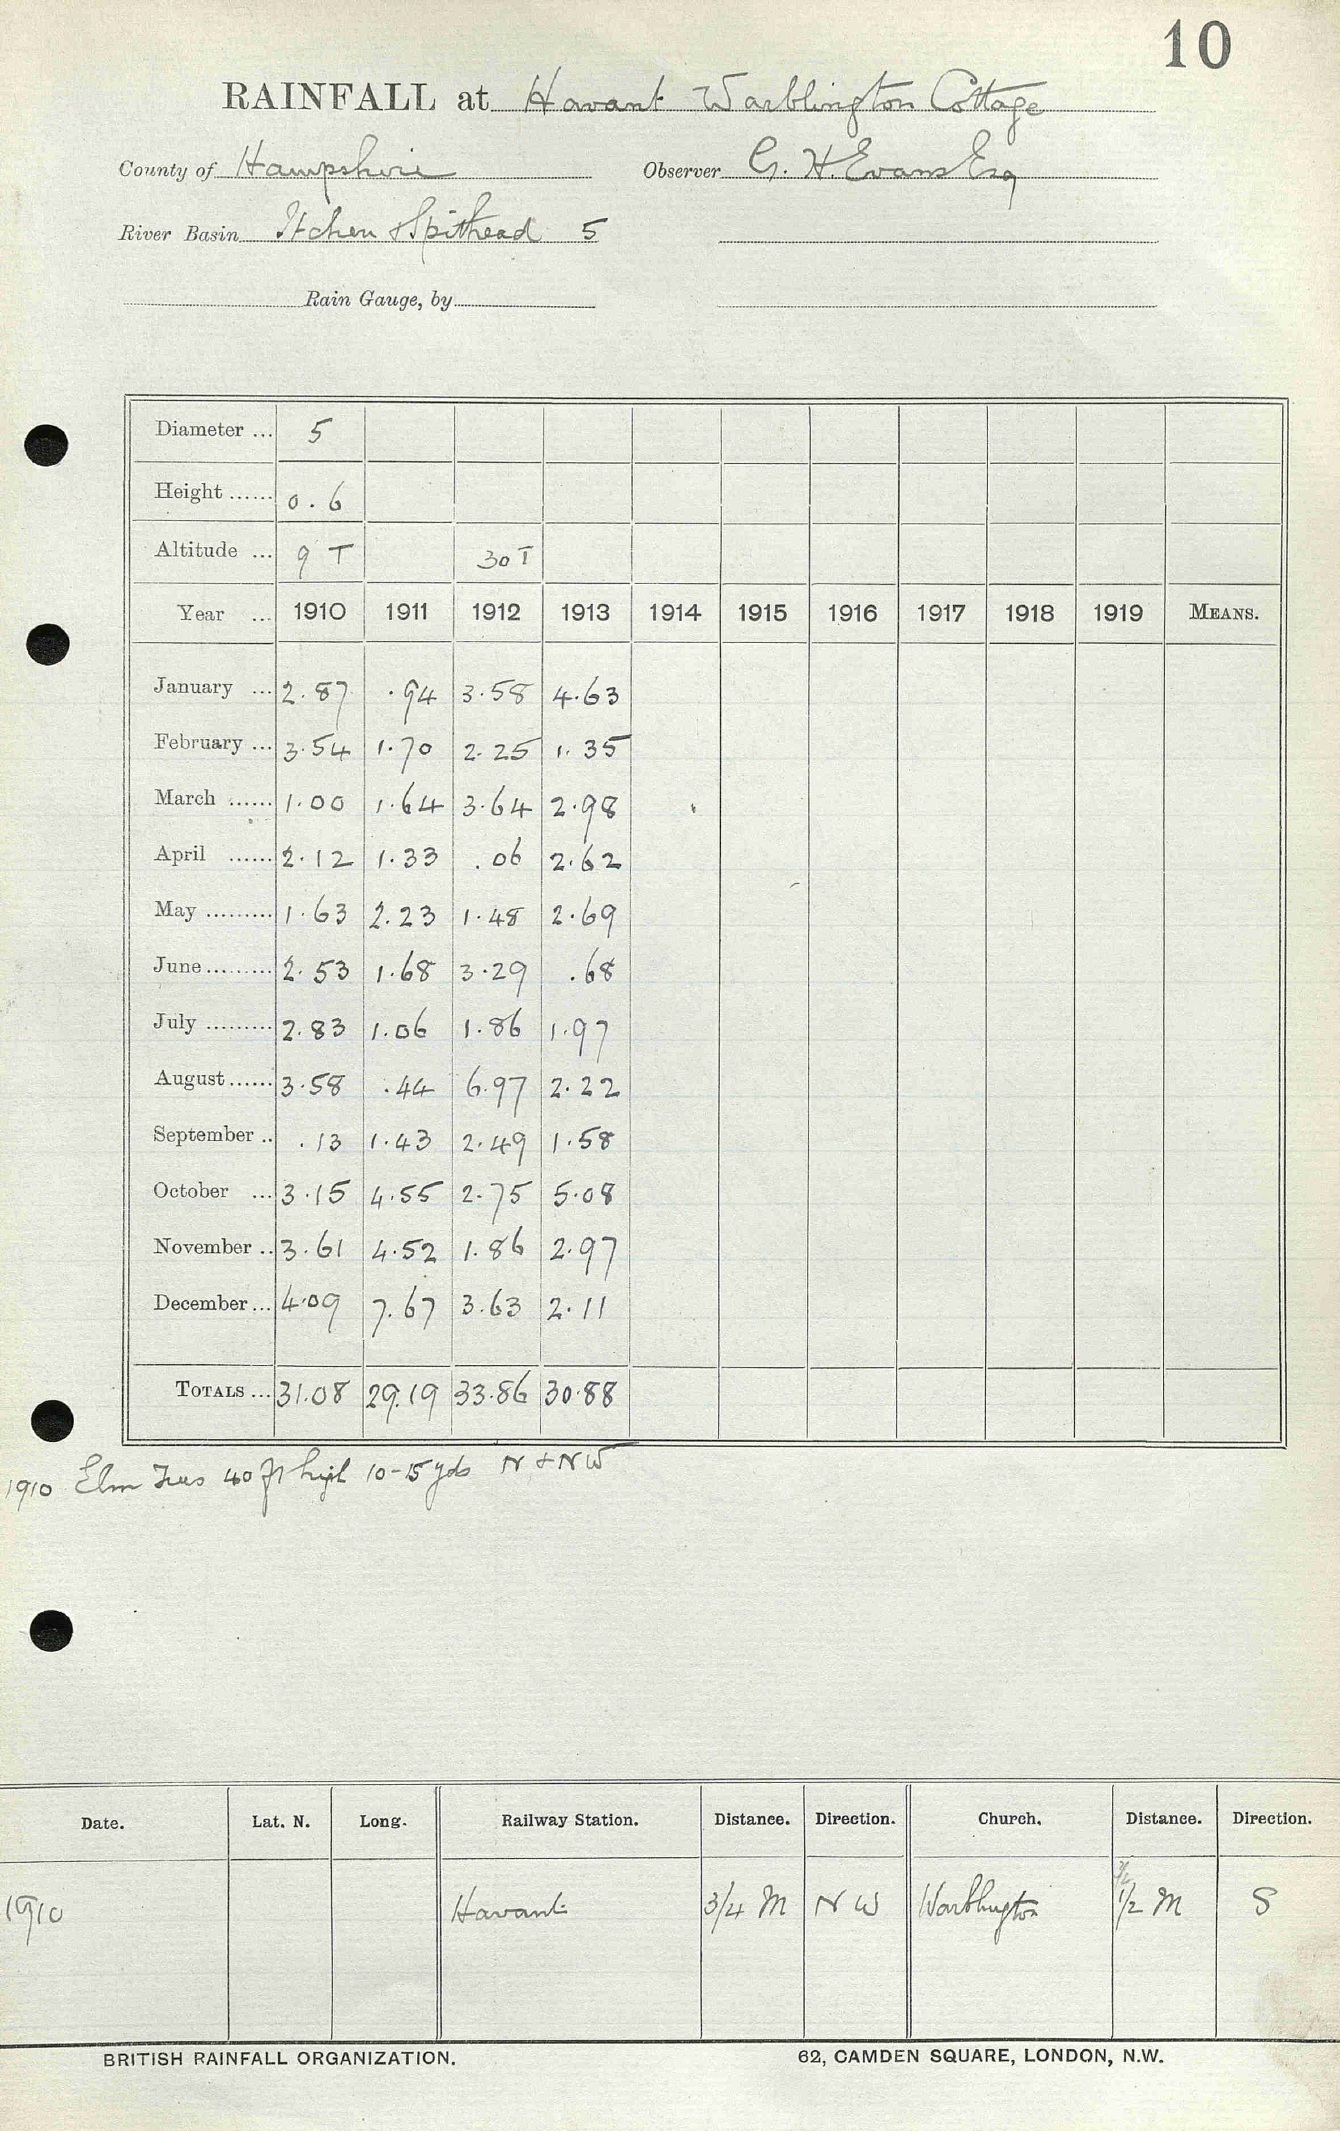 10
RAINFALL at Havant Warblington Cottage
County of Hampshire Observer G. H. Evans Esq
River Basin Itchen & Spithead 5
Rain Gauge, by
Diameter ... 5
Height ...... 0.6
Altitude ... 9 T 30 T
Year ... 1910 1911 1912 1913 1914 1915 1916 1917 1918 1919 MEANS.
January ... 2.87 .94 3.58 4.63
February ... 3.54 1.70 2.25 1.35
March ...... 1.00 1.64 3.64 2.98
April ...... 2.12 1.33 .06 2.62
May ......... 1.63 2.23 1.48 2.69
June ......... 2.53 1.68 3.29 .68
July ......... 2.83 1.06 1.86 1.97
August ...... 3.58 .44 6.97 2.22
September .. .13 1.43 2.49 1.58
October ... 3.15 4.55 2.75 5.08
November .. 3.61 4.52 1.86 2.97
December ... 4.09 7.67 3.63 2.11
TOTALS ... 31.08 29.19 33.86 30.88
1910 Elm Trees 40 ft high 10-15 yds N & NW
Date. Lat. N. Long. Railway Station. Distance. Direction. Church. Distance. Direction.
1910 Havant 3/4 M N W Warblington 1/2 M S
BRITISH RAINFALL ORGANIZATION. 62, CAMDEN SQUARE, LONDON, N.W.